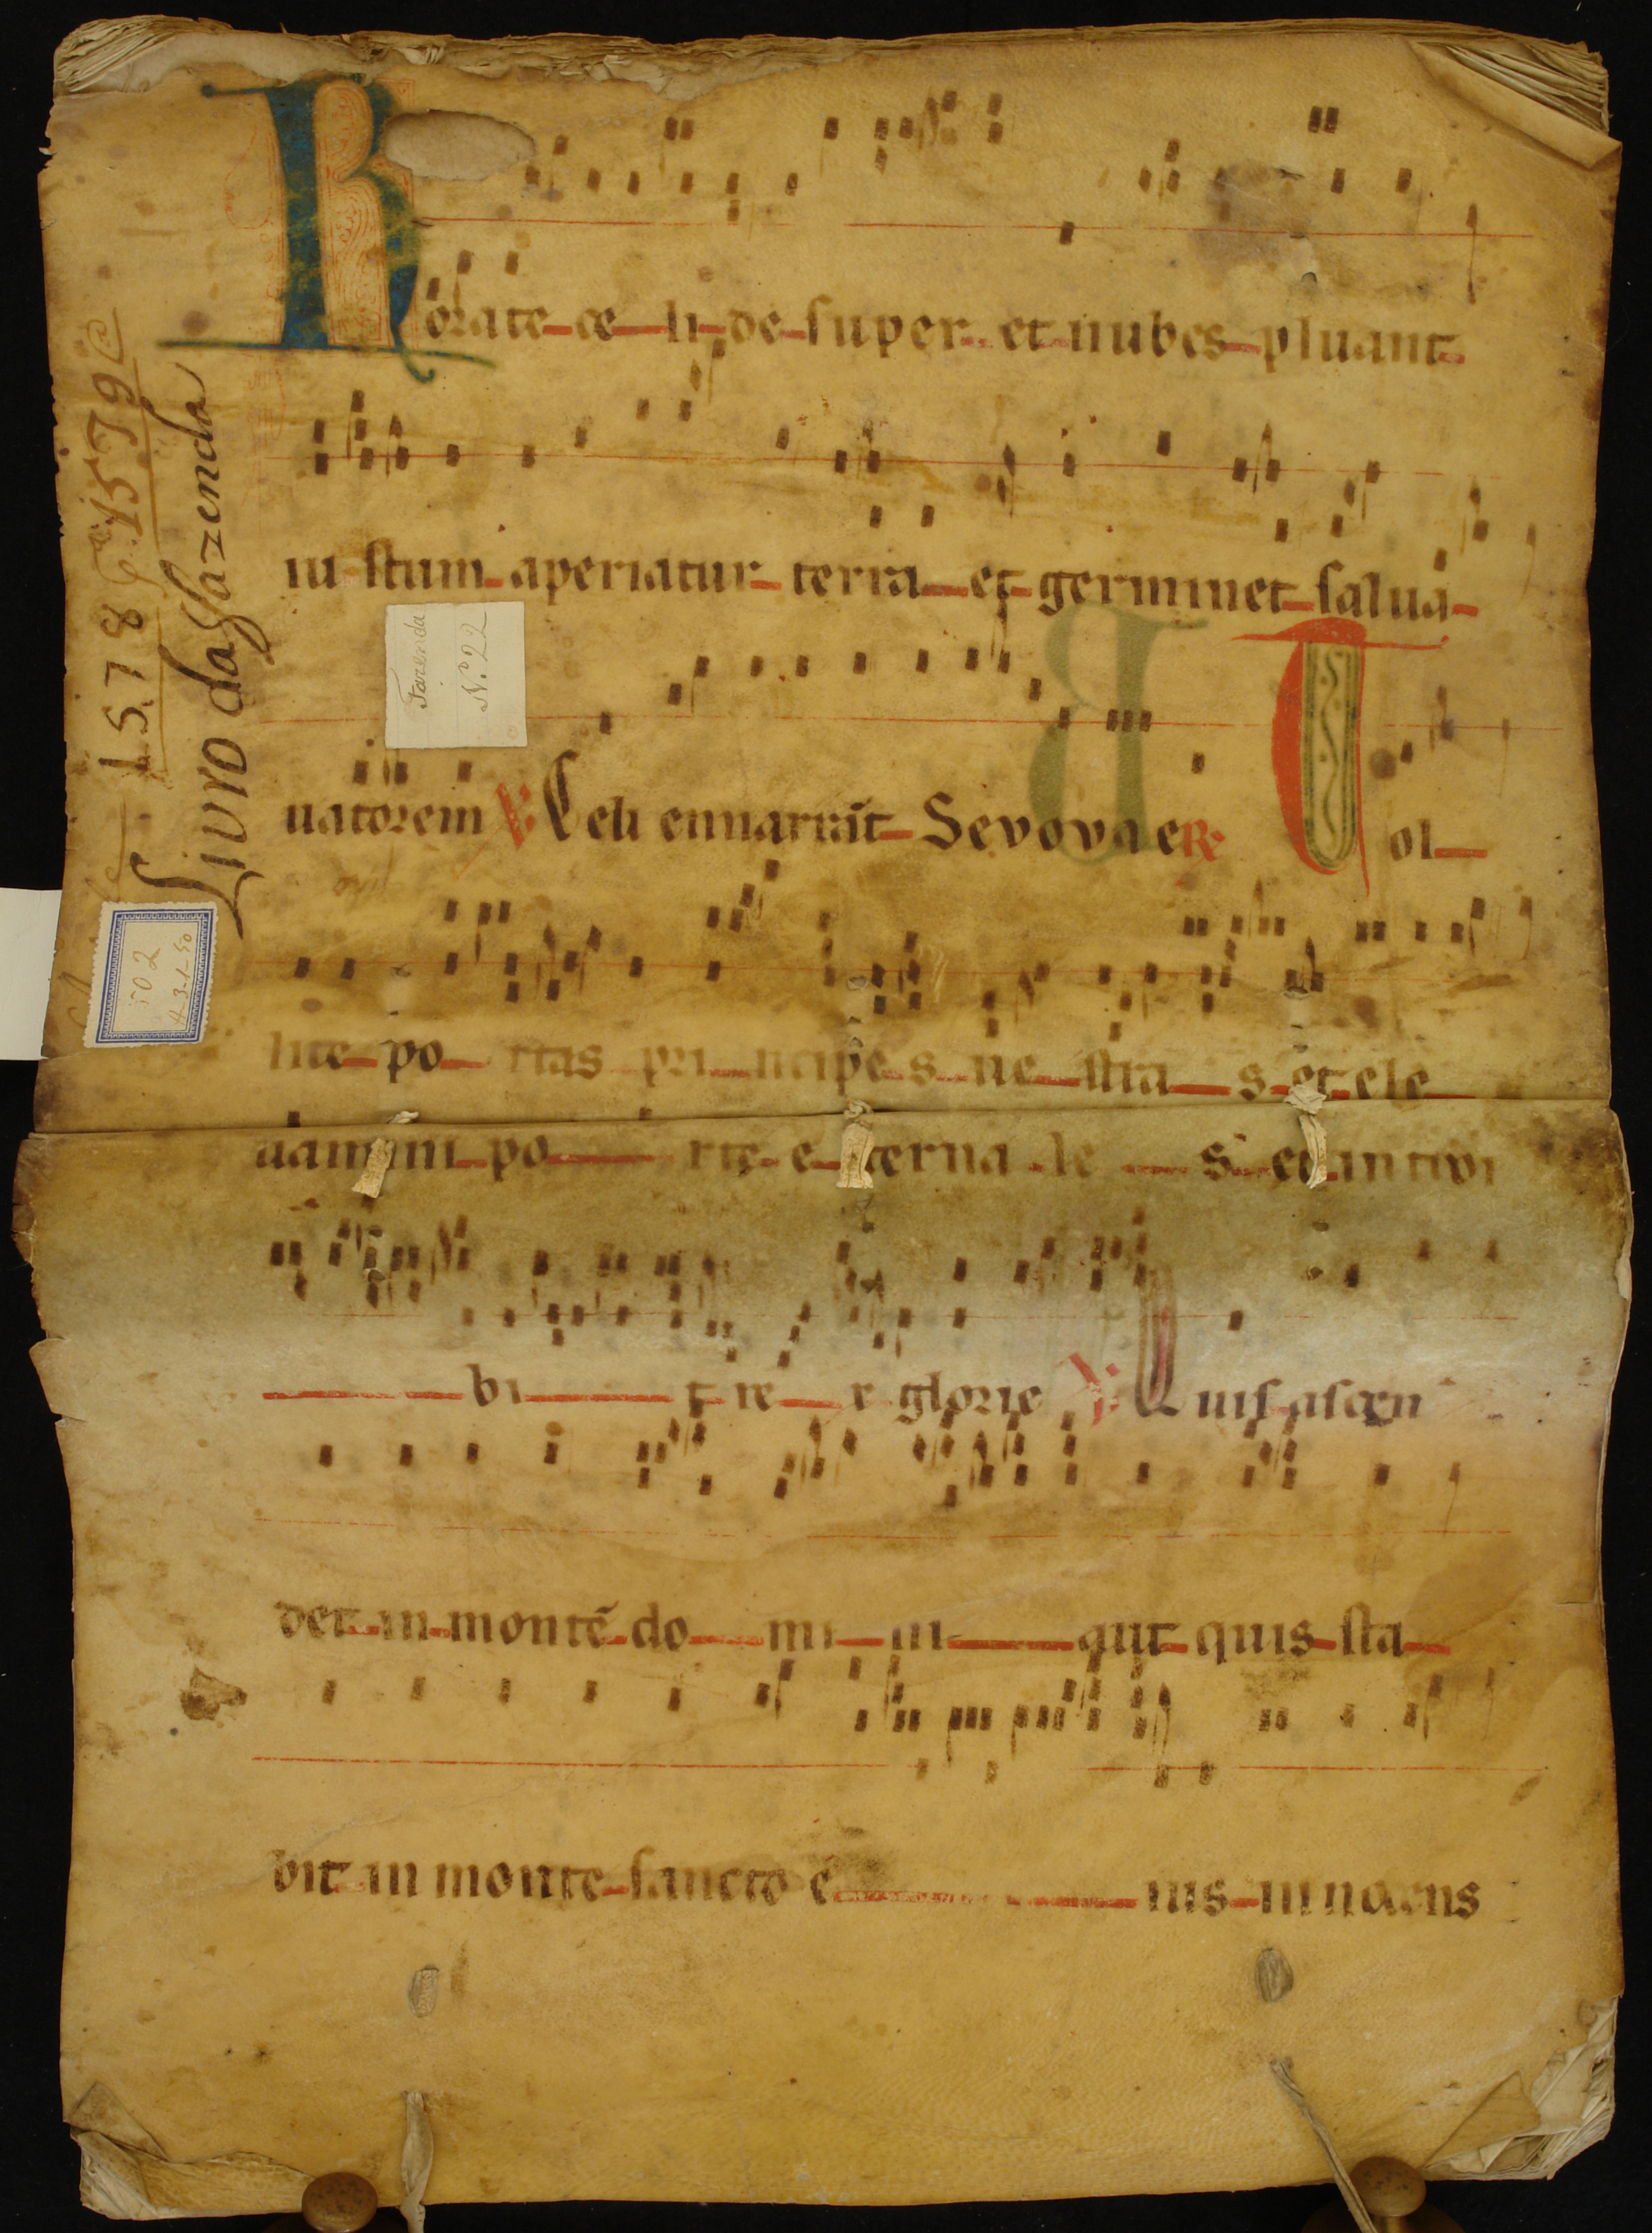 Rorate ce li de super et nubes pluant
iu stum aperiatur terra et germinet salua
uatorem ℣ Celi enuarrāt Seuouae ℟ Tol
lite po rtas pri ncipe s ue stra s et ele
uamini po rte e terna le s et introi
bi t re x glorie ℣ Quis ascen
det in montē do mi ni aut quis sta
bit in monte sancto e ius innocens
1578 15J9
Livro da fazenda
Fazenda
N.º 22
502
4-3-1-50